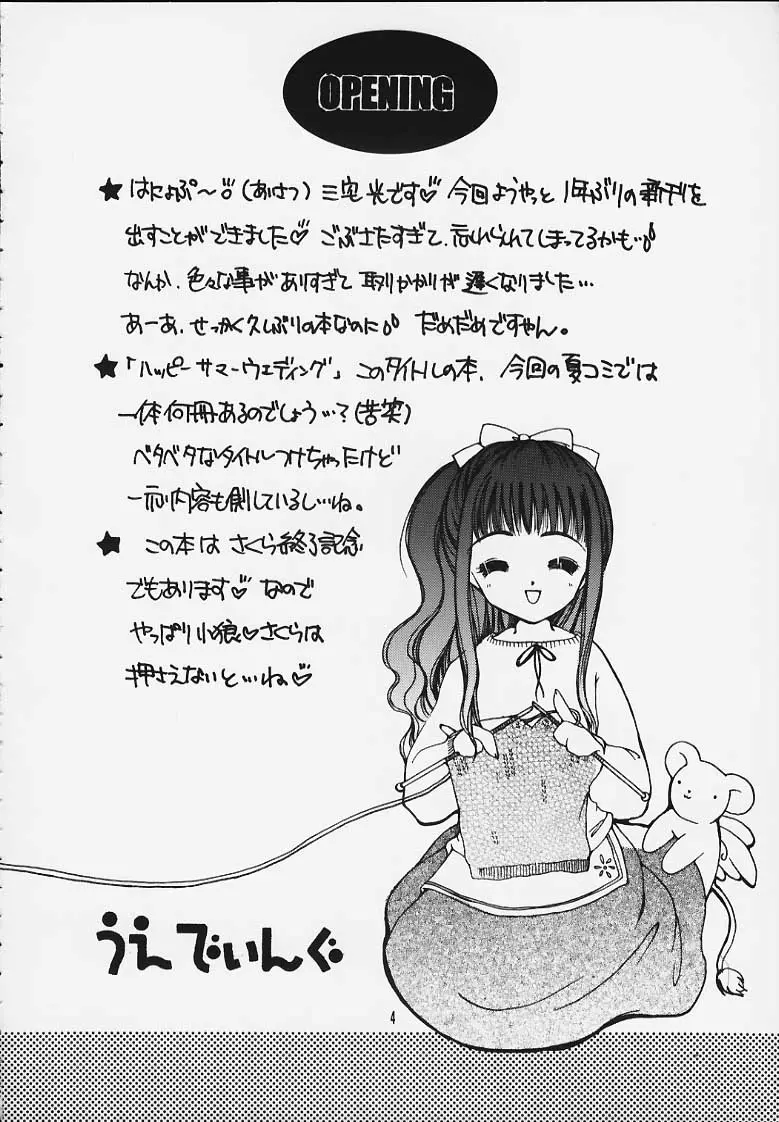 OPENING
★ はにょぷ〜♡(あいさつ) 三宅光です♡ 今回ようやっと 1年ぶりの新刊を
出すことができました♡ ごぶさたすぎて、忘れられてしまってるかも…
なんか、色々な事がありすぎて 取りかかりが遅くなりました…
あーあ、せっかく久しぶりの本なのに だめだめですやん。
★ 「ハッピー サマーウエディング」このタイトルの本、今回の夏コミでは
一体何冊あるのでしょう…?(苦笑)
ベタベタなタイトルつけちゃったけど
一応内容も側しているし…ね。
★ この本は さくら終了記念
でもあります♡ なので
やっぱり小狼♡さくらは
押さえないと…ね♡
うえでいんぐ
4